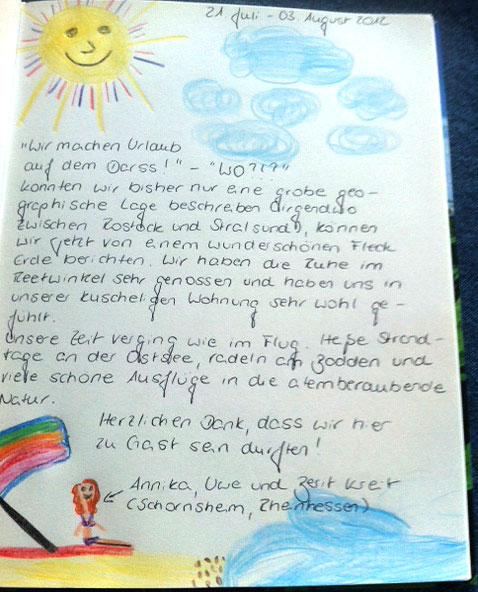 21. Juli - 03. August 2012
"Wir machen Urlaub
auf dem Darss!" - "WO?!?"
konnten wir bisher nur eine grobe geo-
graphische Lage beschreiben (irgendwo
zwischen Rostock und Stralsund), können
wir jetzt von einem wunderschönen Fleck
Erde berichten. Wir haben die Ruhe im
Reetwinkel sehr genossen und haben uns in
unserer kuscheligen Wohnung sehr wohl ge-
fühlt.
Unsere Zeit verging wie im Flug. Heiße Strand-
tage an der Ostsee, radeln am Bodden und
viele schöne Ausflüge in die atemberaubende
Natur.
Herzlichen Dank, dass wir hier
zu Gast sein durften!
Annika, Uwe und
(Schornsheim, Rheinhessen)